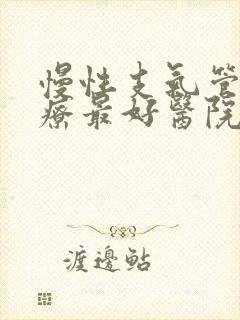 慢性支氣管
療最好醫院
渡邊鮎